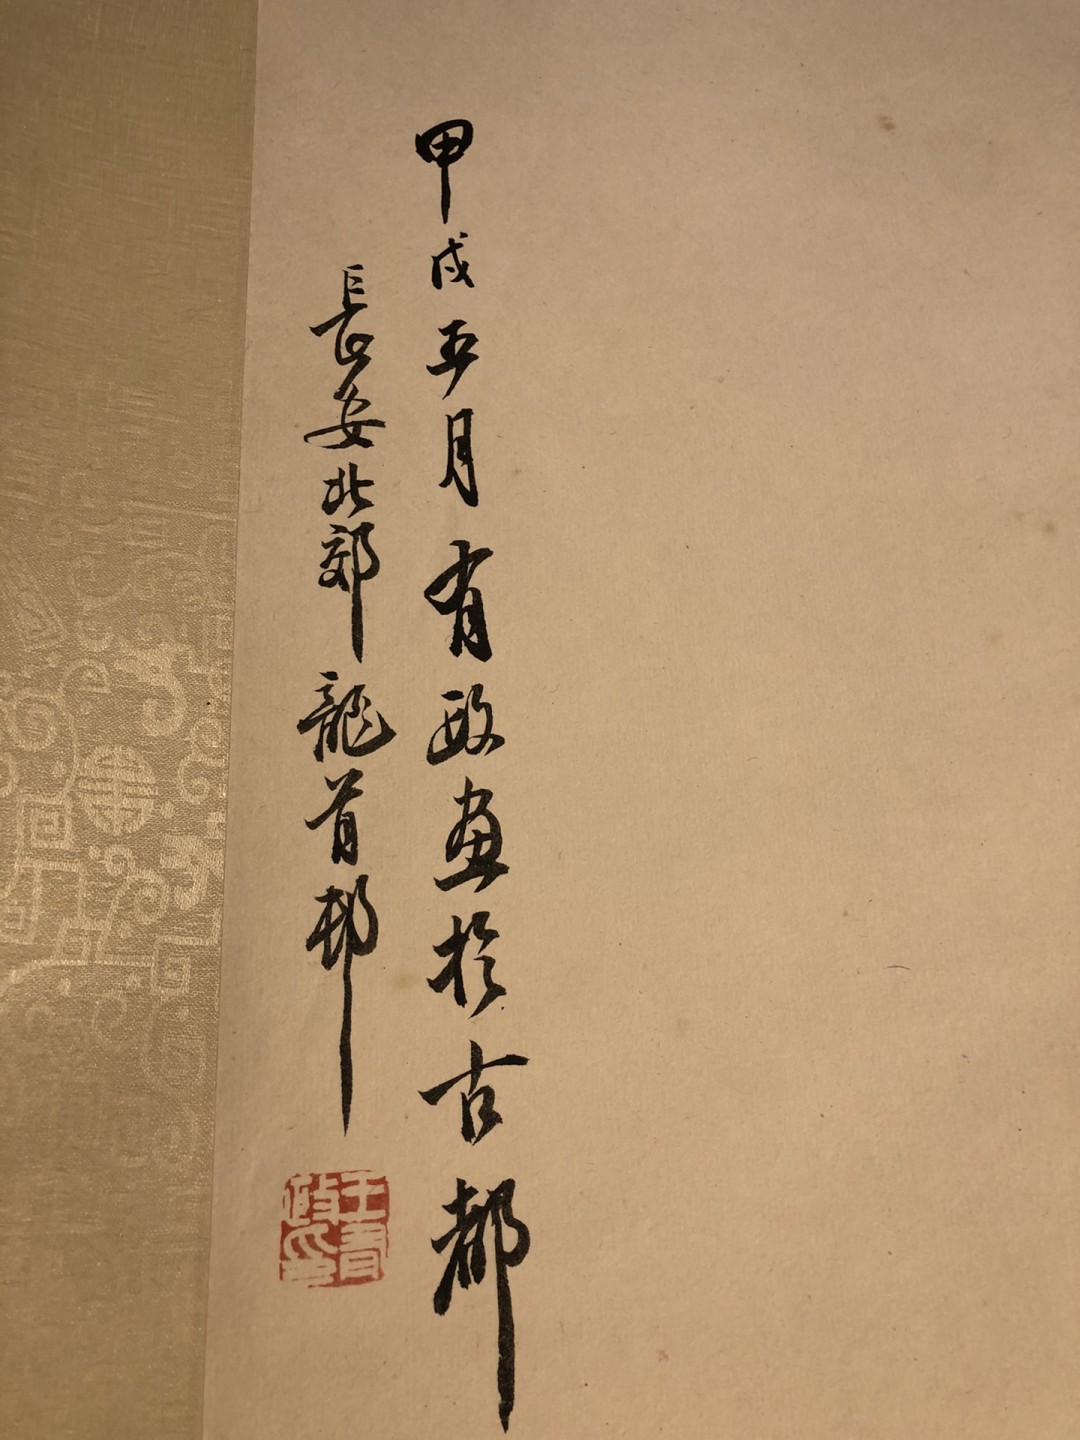 甲戌五月有政畫於古都
長安北郊龍首邨
王有政印